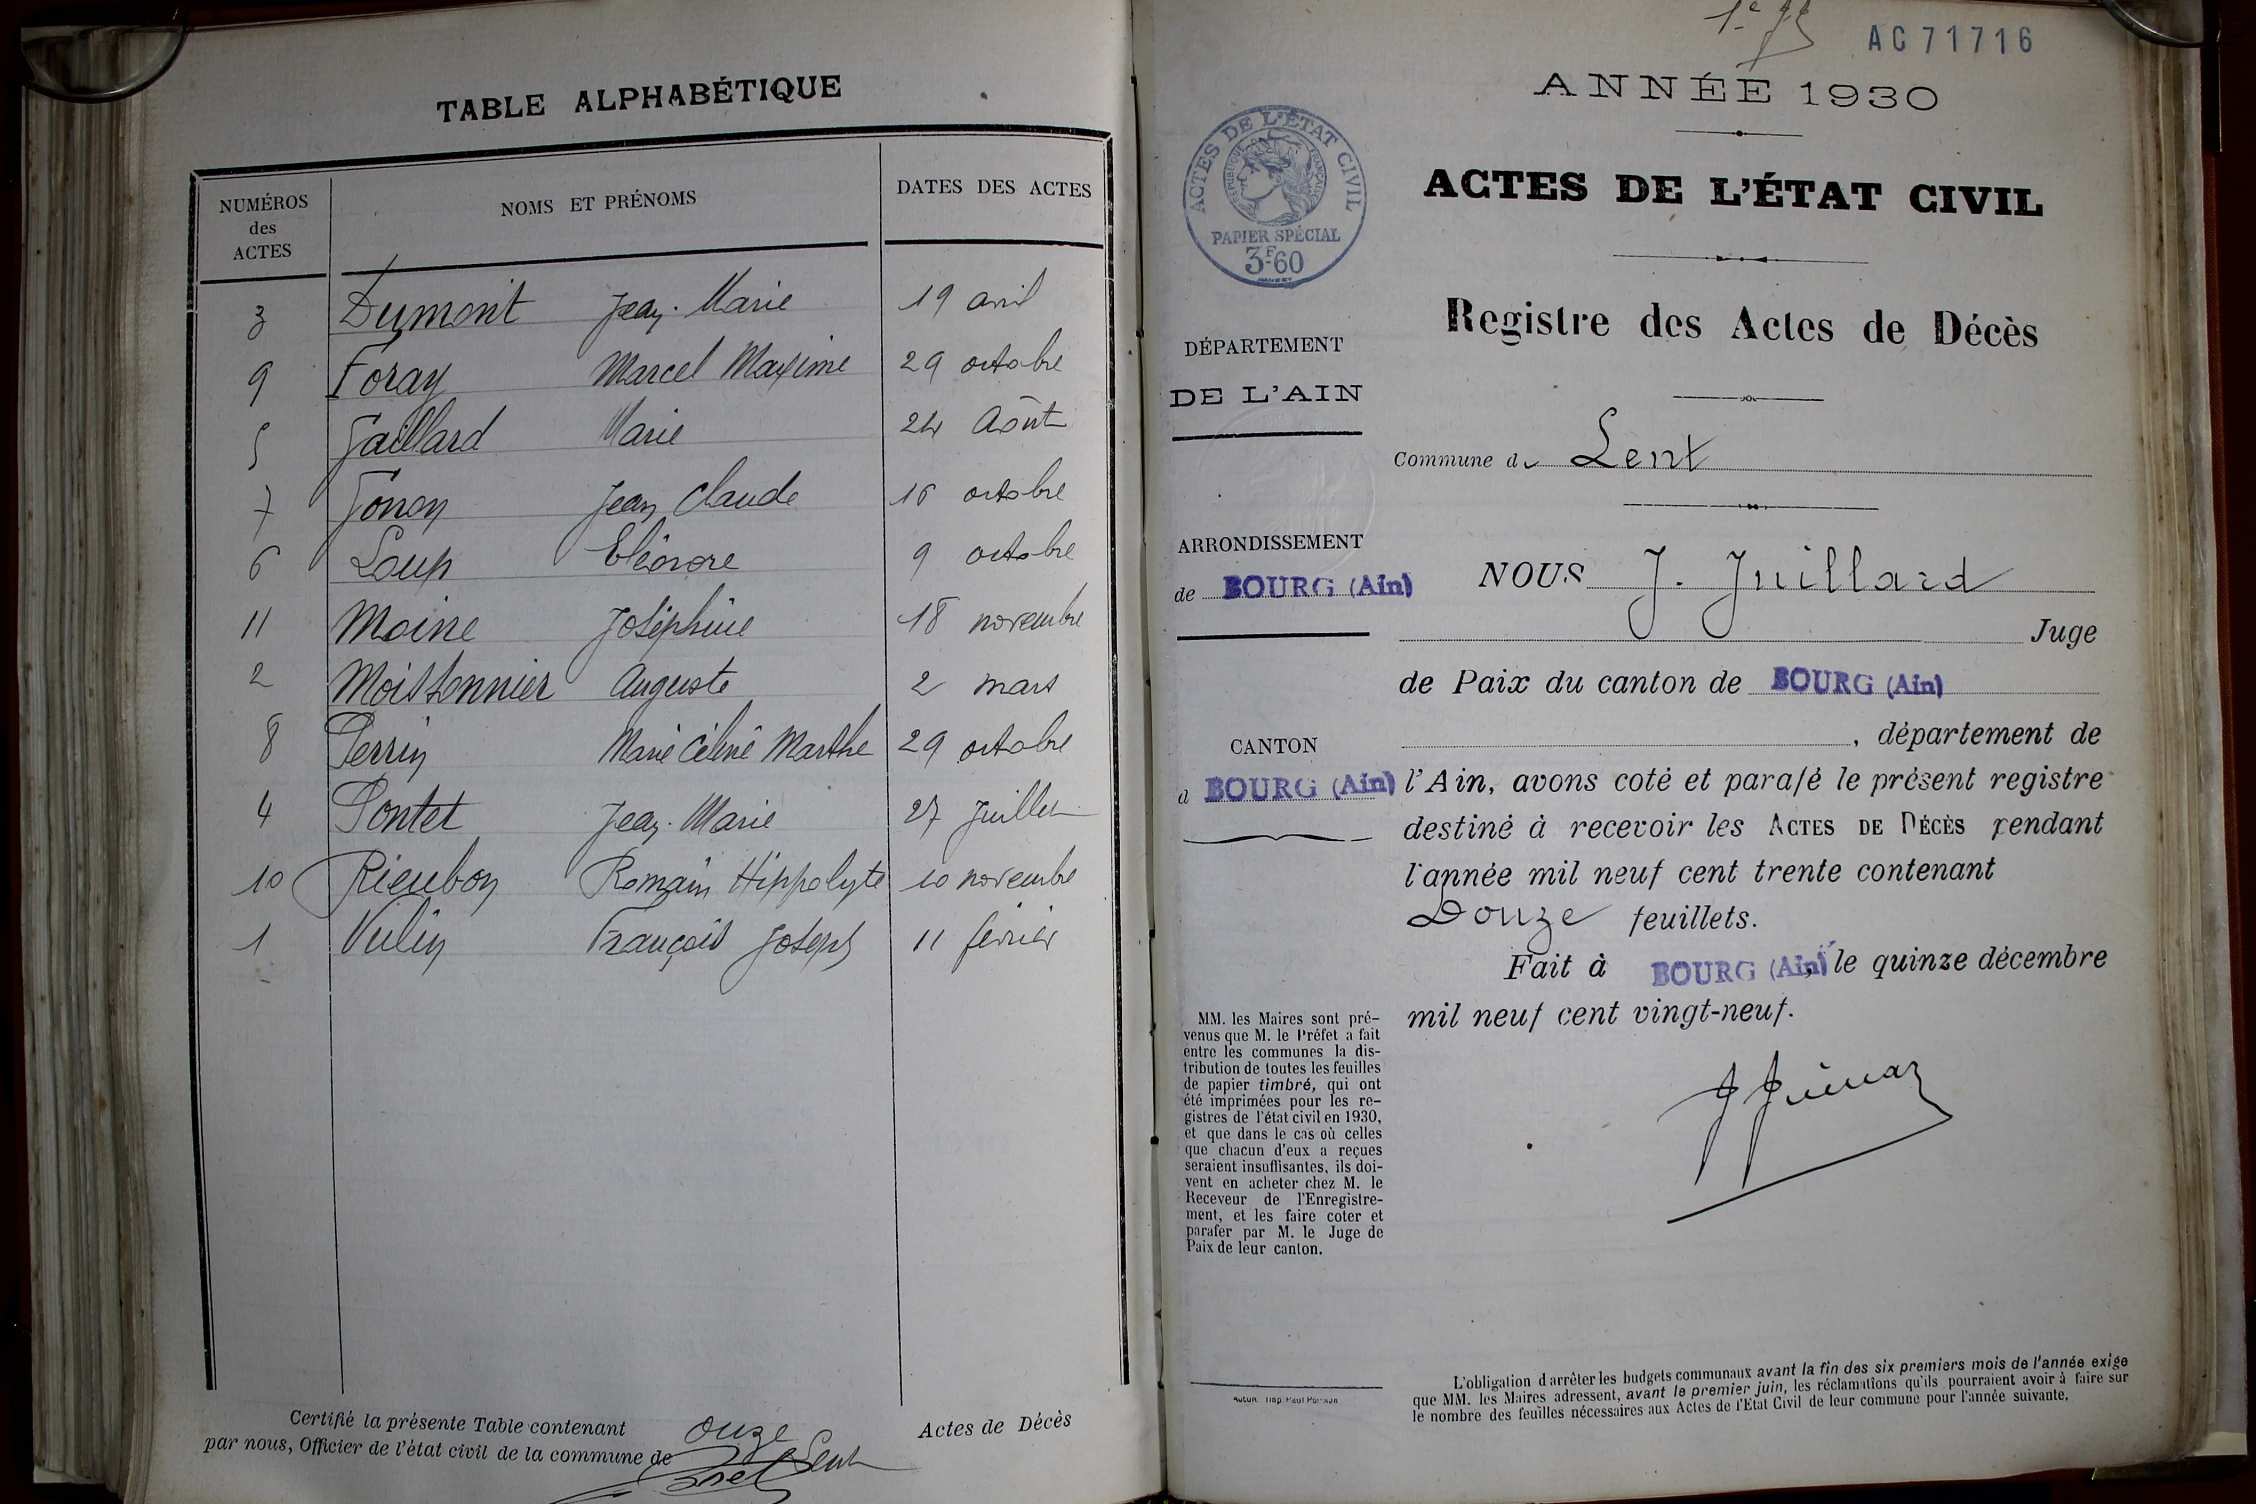 TABLE ALPHABÉTIQUE
NUMÉROS
des
ACTES
NOMS ET PRÉNOMS
DATES DES ACTES
3 Dumont Jean-Marie 19 avril
9 Foray Marcel Maxime 29 octobre
5 Gaillard Marie 24 Août
7 Gonon Jean Claude 16 octobre
6 Loup Eléonore 9 octobre
11 Moine Joséphine 18 novembre
2 Moissonnier Auguste 2 mars
8 Perrin Marie Céline Marthe 29 octobre
4 Pontet Jean-Marie 27 Juillet
10 Rieubon Romain Hippolyte 10 novembre
1 Vulin François Joseph 11 février
Certifié la présente Table contenant onze Actes de Décès
par nous, Officier de l'état civil de la commune de Lent
AC71716
ANNÉE 1930
ACTES DE L'ÉTAT CIVIL
RÉPUBLIQUE FRANÇAISE
PAPIER SPÉCIAL
3F60
ACTES DE L'ÉTAT CIVIL
Registre des Actes de Décès
DÉPARTEMENT
DE L'AIN
Commune de Lent
ARRONDISSEMENT
de BOURG (Ain)
NOUS J. Juillard
Juge
de Paix du canton de BOURG (Ain)
, département de
CANTON
d BOURG (Ain)
l'Ain, avons coté et parafé le présent registre
destiné à recevoir les ACTES DE DÉCÈS pendant
l'année mil neuf cent trente contenant
Douze feuillets.
Fait à BOURG (Ain), le quinze décembre
mil neuf cent vingt-neuf.
MM. les Maires sont pré-
venus que M. le Préfet a fait
entre les communes la dis-
tribution de toutes les feuilles
de papier timbré, qui ont
été imprimées pour les re-
gistres de l'état civil en 1930,
et que dans le cas où celles
que chacun d'eux a reçues
seraient insuffisantes, ils doi-
vent en acheter chez M. le
Receveur de l'Enregistre-
ment, et les faire coter et
parafer par M. le Juge de
Paix de leur canton.
L'obligation d'arrêter les budgets communaux avant la fin des six premiers mois de l'année exige
que MM. les Maires adressent, avant le premier juin, les réclamations qu'ils pourraient avoir à faire sur
le nombre des feuilles nécessaires aux Actes de l'Etat Civil de leur commune pour l'année suivante.